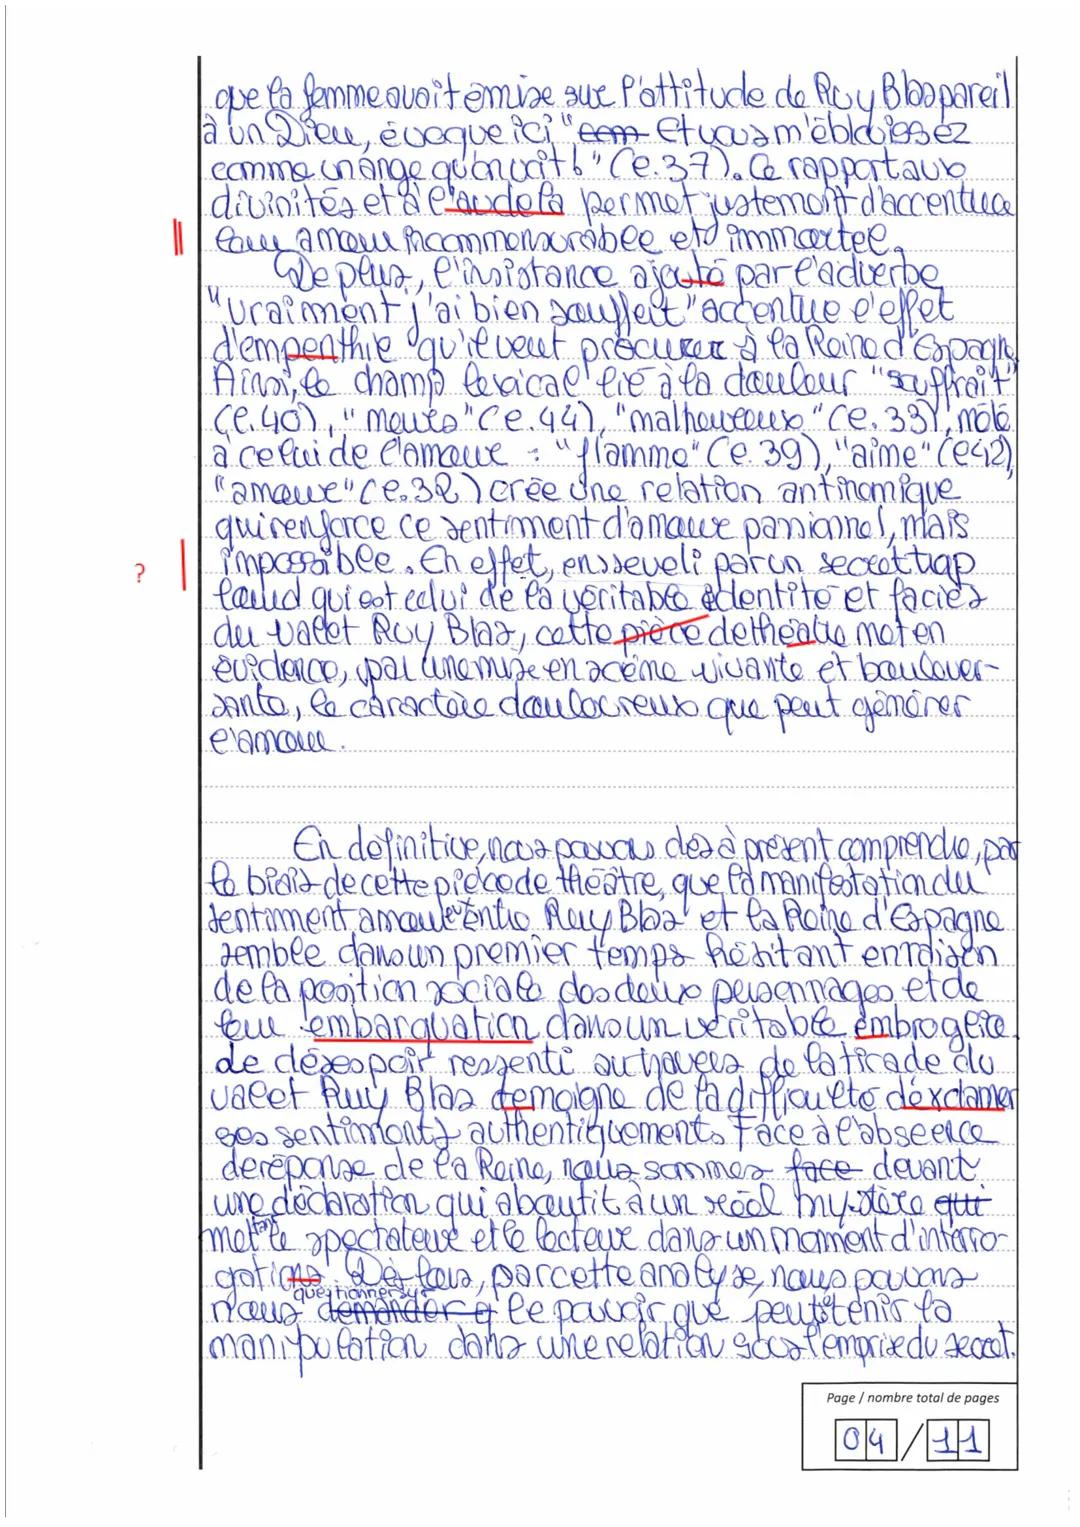 que la femme avait émise sur l'attitude de Ruy Blas pareil
à un Dieu, évoque ici "Et vous m'éblouissez
comme un ange qu'on voit !" (l.37). Ce rapport aux
divinités et à l'audela permet justement d'accentuer
leur amour incommensurable et immortel.
De plus, l'insistance ajouté par l'adverbe
"vraiment j'ai bien souffert" accentue l'effet
d'empenthie qu'il veut procurer à la Reine d'Espagne
Ainsi, le champ lexical lié à la douleur "souffrait"
(l.40), "meurs" (l.44), "malheureux" (l.33), mêlé
à celui de l'amour : "flamme" (l.39), "aime" (l42),
"amour" (l.32) crée une relation antinomique
qui renforce ce sentiment d'amour passionnel, mais
? impossible. En effet, enseveli par un secret trop
lourd qui est celui de la véritable identité et faciès
du valet Ruy Blas, cette pièce de théâtre met en
évidence, par une mise en scène vivante et boulever-
sante, le caractère douloureux que peut générer
l'amour.
En définitive, nous pouvons dès à présent comprendre, par
le biais de cette pièce de théâtre, que la manifestation du
sentiment amoureux entre Ruy Blas et la Reine d'Espagne
semble dans un premier temps hésitant en raison
de la position sociale des deux personnages et de
leur embarquation dans un véritable embroglio.
de désespoir ressenti au travers de la tirade du
valet Ruy Blas temoigne de la difficulté d'éxclamer
ses sentiments authentiquement. Face à l'absence
de réponse de la Reine, nous sommes face devant
une déclaration qui aboutit à un réel mystère qui
mettant le spectateur et le lecteur dans un moment d'interro-
gations. Dès lors, par cette analyse, nous pouvons
questionner sur
nous demander q le pouvoir que peut tenir la
manipulation dans une relation sous l'emprise du secret.
Page / nombre total de pages
04 / 11